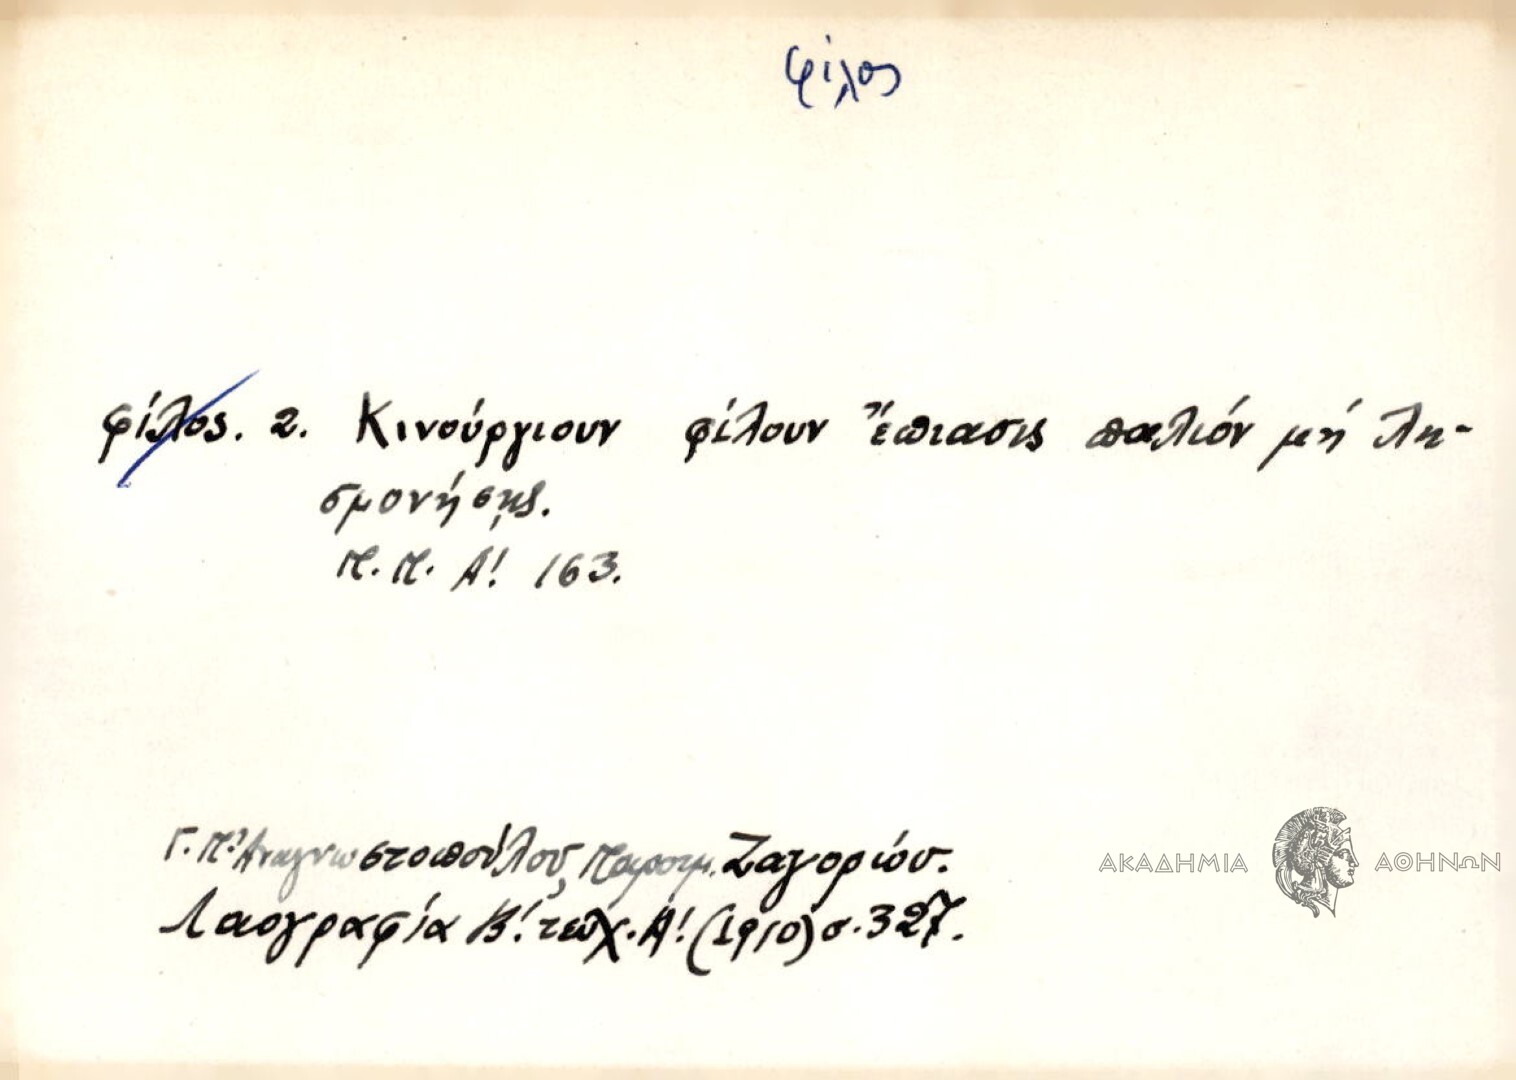 φίλος
φίλος. 2. Κινούργιουν φίλουν ἔπιασις παλιόν μή λη-
σμονήσῃς.
Π. Π. Α! 163.
Γ. Π. Ἀναγνωστοπούλου, Παροιμ. Ζαγορίου.
Λαογραφία Β! τευχ. Α! (1910) σ. 327.
ΑΚΑΔΗΜΙΑ ΑΘΗΝΩΝ